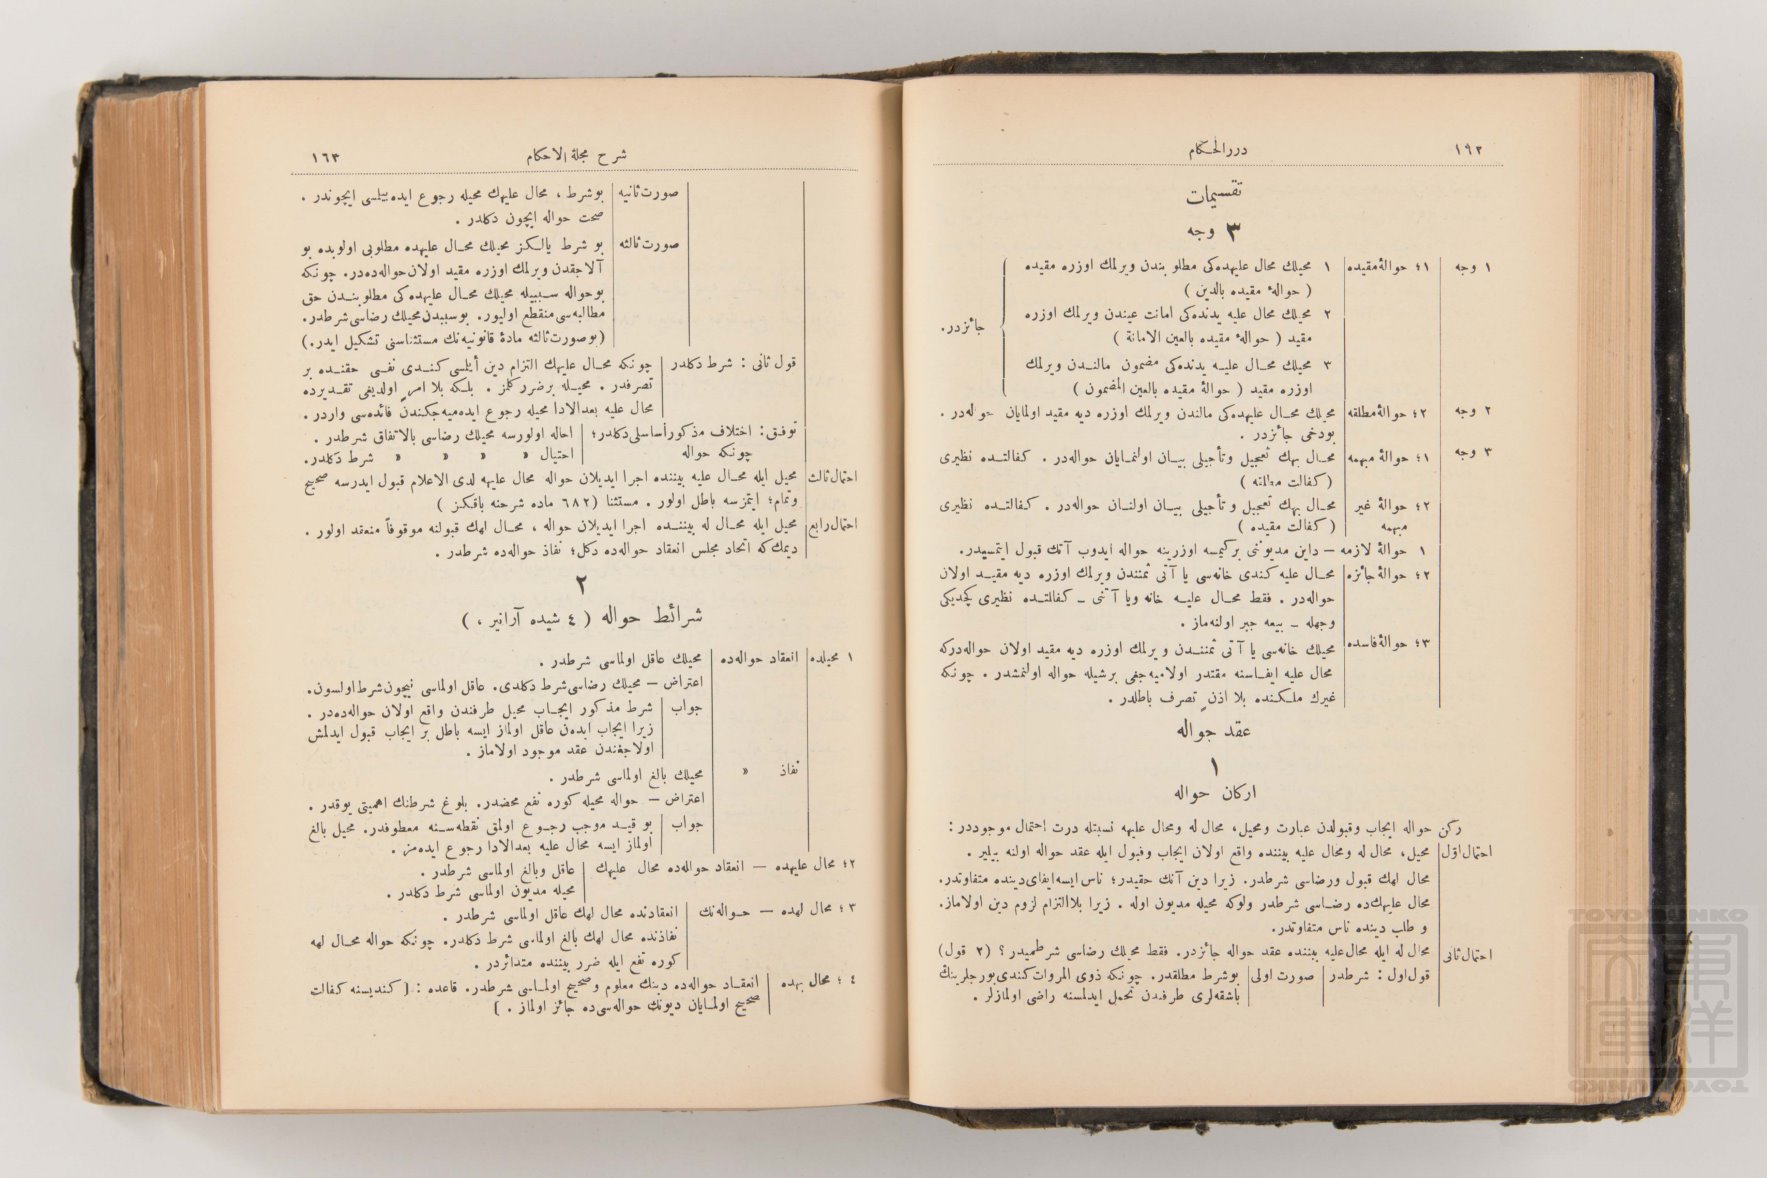 ١٩٢
دررالحكام
تقسيمات
٣ وجه
١ وجه
١؛ حوالهٔ مقيده
١ محيلك محال عليهده‌كى مطلوبندن ويرلمك اوزره مقيده
( حوالهٔ مقيده بالدين )
٢ محيلك محال عليه يدنده‌كى امانت عيندن ويرلمك اوزره
مقيد ( حوالهٔ مقيده بالعين الامانة )
٣ محيلك محال عليه يدنده‌كى مضمون مالندن ويرلمك
اوزره مقيد ( حوالهٔ مقيده بالعين المضمون )
جائزدر.
٢ وجه
٢؛ حوالهٔ مطلقه
محيلك محال عليهده‌كى مالندن ويرلمك اوزره ديه مقيد اولمايان حوله‌در .
بودخى جائزدر .
٣ وجه
١؛ حوالهٔ مبهمه
محال بهك تعجيل وتأجيلى بيان اولنمايان حواله‌در . كفالتده نظيرى
( كفالت مطلقه )
٢؛ حوالهٔ غير
مبهمه
محال بهك تعجيل وتأجيلى بيان اولنان حواله‌در . كفالتده نظيرى
( كفالت مقيده )
١ حوالهٔ لازمه — داين مديوننى بركيمسه اوزرينه حواله ايدوب آنك قبول ايتمسيدر.
٢؛ حوالهٔ جائزه
محال عليه كندى خانه‌سى يا آتى ثمنندن ويرلمك اوزره ديه مقيد اولان
حواله‌در . فقط محال عليه خانه ويا آتنى ــ كفالتده نظيرى كچديكى
وجهله ــ بيعه جبر اولنه‌ماز .
٣؛ حوالهٔ فاسده
محيلك خانه‌سى يا آتى ثمنندن ويرلمك اوزره ديه مقيد اولان حواله‌دركه
محال عليه ايفاسنه مقتدر اولاميه‌جغى برشيله حواله اولنمشدر . چونكه
غيرك ملكنده بلا اذن تصرف باطلدر .
عقد حواله
١
اركان حواله
ركن حواله ايجاب وقبولدن عبارت ومحيل، محال له ومحال عليهه نسبتله درت احتمال موجوددر :
احتمال اول
محيل، محال له ومحال عليه بيننده واقع اولان ايجاب وقبول ايله عقد حواله اولنه بيلير .
محال لهك قبول ورضاسى شرطدر. زيرا دين آنك حقيدر؛ ناس ايسه ايفاى دينده متفاوتدر.
محال عليهك‌ده رضاسى شرطدر ولوكه محيله مديون اوله . زيرا بلاالتزام لزوم دين اولاماز.
و طلب دينده ناس متفاوتدر.
احتمال ثانى
محال له ايله محال عليه بيننده عقد حواله جائزدر. فقط محيلك رضاسى شرطميدر ؟ (٢ قول)
قول اول : شرطدر
صورت اولى
بوشرط مطلقدر. چونكه ذوى المروات كندى بورجلرينك
باشقه‌لرى طرفندن تحمل ايدلمسنه راضى اولمازلر .
شرح مجلة الاحكام
١٦٣
صورت ثانيه
بوشرط ، محال عليهك محيله رجوع ايده‌بيلمسى ايچوندر .
صحت حواله ايچون دكلدر .
صورت ثالثه
بو شرط يالكز محيلك محال عليهده مطلوبى اولوبده بو
آلاجقدن ويرلمك اوزره مقيد اولان حواله‌ده‌در. چونكه
بوحواله سببيله محيلك محال عليهده‌كى مطلوبندن حق
مطالبه‌سى منقطع اوليور. بوسببدن محيلك رضاسى شرطدر.
(بوصورت ثالثه مادهٔ قانونيه‌نك مستثناسنى تشكيل ايدر.)
قول ثانى : شرط دكلدر
چونكه محال عليهك التزام دين ايلمسى كندى نفسى حقنده بر
تصرفدر . محيله برضرر كلمز . بلكه بلا امر اولديغى تقديرده
محال عليه بعدالادا محيله رجوع ايده‌ميه‌جكندن فائده‌سى واردر .
توفيق : اختلاف مذكور اساسلى دكلدر؛
چونكه حواله
احاله اولورسه محيلك رضاسى بالاتفاق شرطدر .
احتيال » » » » شرط دكلدر.
احتمال ثالث
محيل ايله محال عليه بيننده اجرا ايديلان حواله محال عليهه لدى الاعلام قبول ايدرسه صحيح
وتمام؛ ايتمزسه باطل اولور . مستثنا (٦٨٢ ماده شرحنه باقكز )
احتمال رابع
محيل ايله محال له بيننده اجرا ايديلان حواله ، محال لهك قبولنه موقوفاً منعقد اولور .
ديمك‌كه اتحاد مجلس انعقاد حواله‌ده دكل؛ نفاذ حواله‌ده شرطدر .
٢
شرائط حواله ( ٤ شيده آرانير ، )
١ محيلده
انعقاد حواله‌ده
محيلك عاقل اولماسى شرطدر .
اعتراض — محيلك رضاسى شرط دكلدى. عاقل اولماسى نيچون شرط اولسون.
جواب
شرط مذكور ايجاب محيل طرفندن واقع اولان حواله‌ده‌در .
زيرا ايجاب ايده‌ن عاقل اولماز ايسه باطل بر ايجاب قبول ايدلمش
اولاجغندن عقد موجود اولاماز .
نفاذ »
محيلك بالغ اولماسى شرطدر .
اعتراض — حواله محيله كوره نفع محضدر. بلوغ شرطنك اهميتى يوقدر .
جواب
بو قيد موجب رجوع اولمق نقطه‌سنه معطوفدر. محيل بالغ
اولماز ايسه محال عليه بعدالادا رجوع ايده‌مز .
٢؛ محال عليهده — انعقاد حواله‌ده محال عليهك
عاقل وبالغ اولماسى شرطدر .
محيله مديون اولماسى شرط دكلدر .
٣ ؛ محال لهده — حواله‌نك
انعقادنده محال لهك عاقل اولماسى شرطدر .
نفاذنده محال لهك بالغ اولماسى شرط دكلدر. چونكه حواله محال لهه
كوره نفع ايله ضرر بيننده متدائردر .
٤ ؛ محال بهده
انعقاد حواله‌ده دينك معلوم وصحيح اولماسى شرطدر. قاعده : ( كنديسنه كفالت
صحيح اولمايان ديونك حواله‌سى‌ده جائز اولماز . )
TOYO BUNKO
東洋文庫
TOYO BUNKO